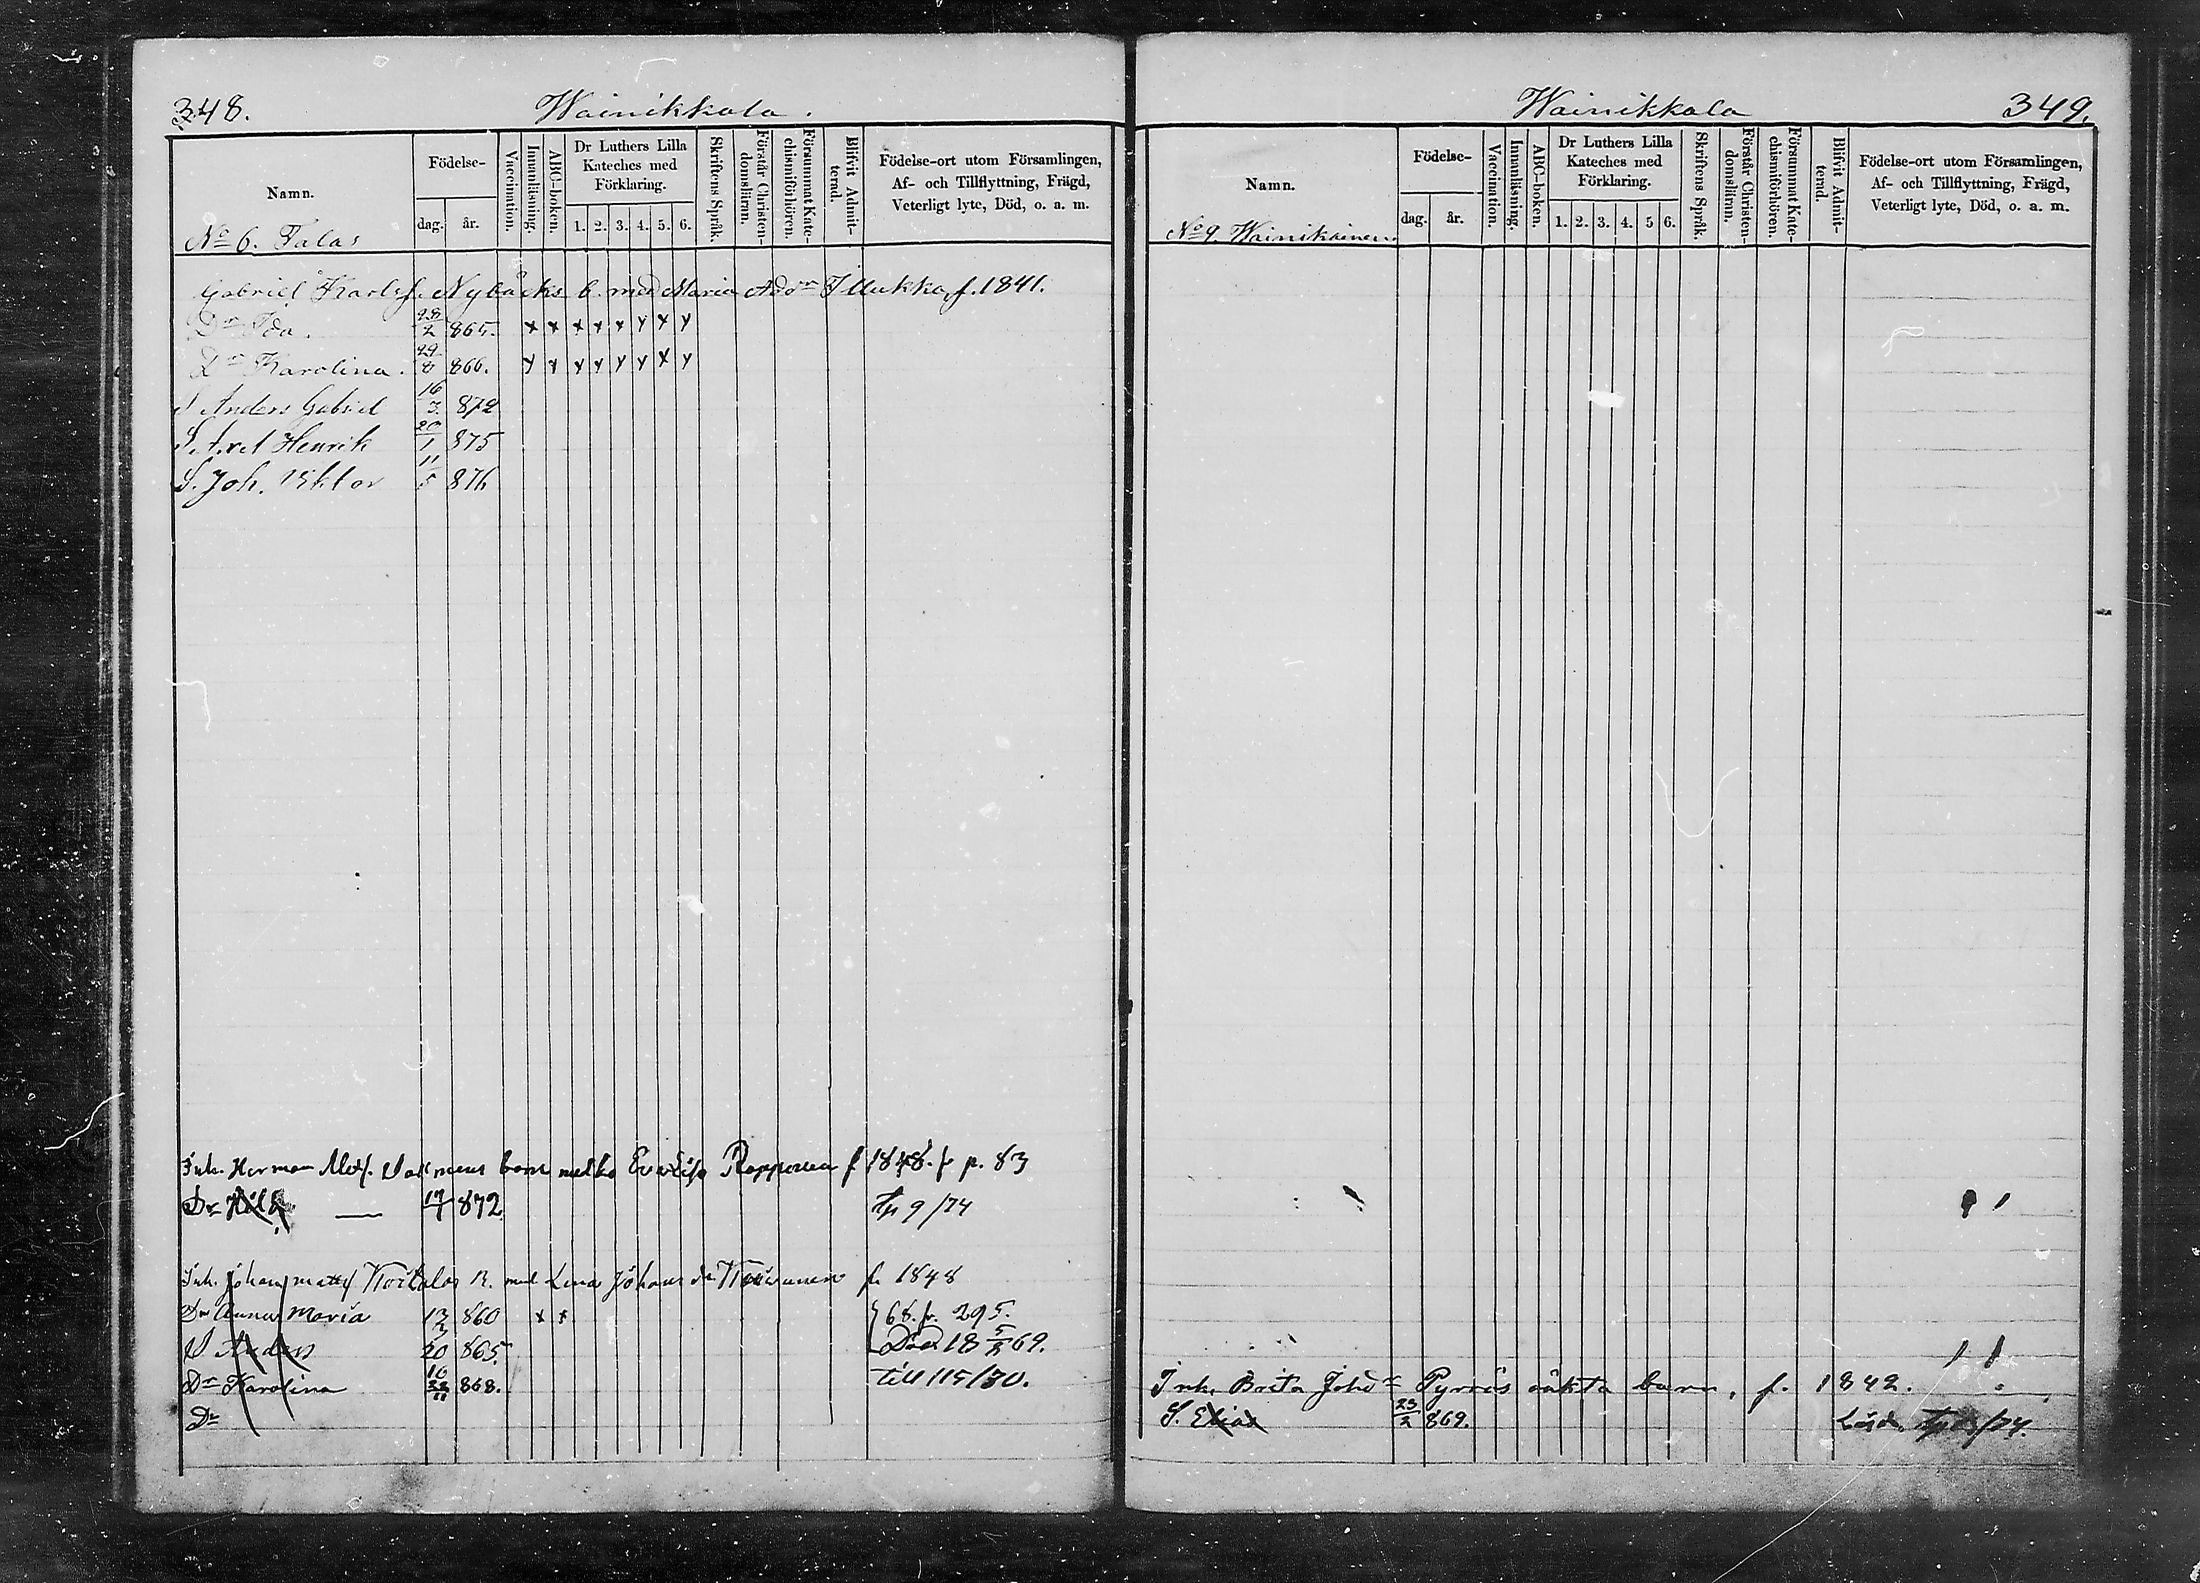 348.
Wainikkala.
Namn.
Födelse-
dag.
år.
Vaccination.
Innanläsning.
ABC-boken.
Dr Luthers Lilla
Kateches med
Förklaring.
1. 2. 3. 4. 5. 6.
Skriftens Språk.
Förstår Christen-
domsläran.
Försummat Kate-
chismiförhören.
Blifvit Admit-
terad.
Födelse-ort utom Församlingen,
Af- och Tillflyttning, Frägd,
Veterligt lyte, Död, o. a. m.
No 6. Talas
Gabriel Karlsf. Nybäcks b. med Maria Adr Illukka, f. 1841.
Dr Ida. 28/2 865. x x x x x x x x
Dr Karolina. 29/8 866. x x x x x x x x
S Anders Gabriel 16/3 872
S. Axel Henrik 20/1 875
S. Joh. Viktor 11/5 876
Inh. Herman barn med Eva Lisa f 1848. fr p. 83
Dr Hilda — 17/7 872 tp 9/74
Inh. Johan Matts B. med Lena Johans dr f. 1848
Dr Anna Maria 860 x x 68. fr. 295.
S Anders 20 865. Död 18 69.
Dr Karolina 868. till 115/70.
Dr
Wainikkala
349.
Namn.
Födelse-
dag.
år.
Vaccination.
Innanläsning.
ABC-boken.
Dr Luthers Lilla
Kateches med
Förklaring.
1. 2. 3. 4. 5 6.
Skriftens Språk.
Förstår Christen-
domsläran.
Försummat Kate-
chismiförhören.
Blifvit Admit-
terad.
Födelse-ort utom Församlingen,
Af- och Tillflyttning, Frägd,
Veterligt lyte, Död, o. a. m.
No 9. Wainikainen.
Inh. Brita Johd Pyrräs oäkta barn, f. 1842.
S. Elias 23/2 869.